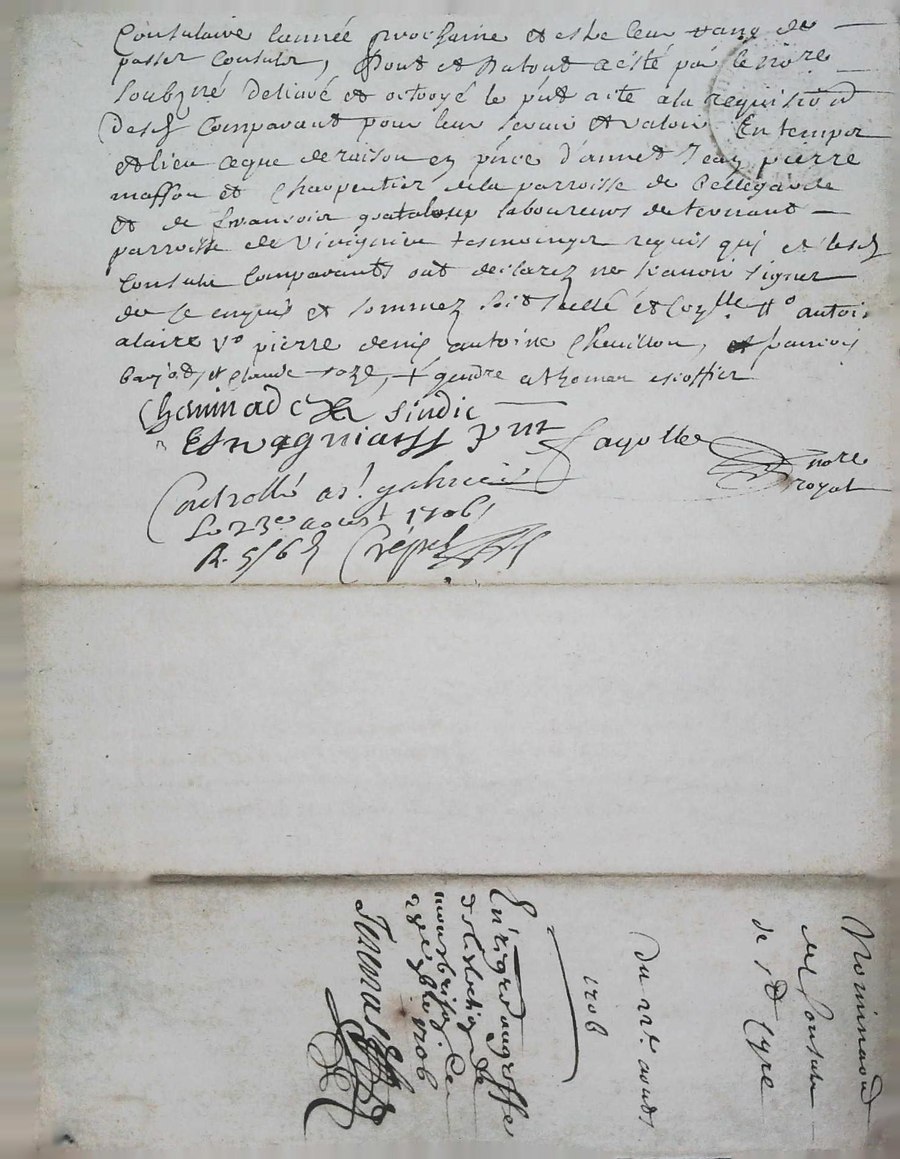 Consulaire lannée prochaine et este leur rang de
passer Consulz, Dont et Du tout a esté par le nore
soubzné delivré et octroyé le pnt acte a la requisition
Desd Comparant pour leur servir et valoir En temps
et lieu ceque de raison en pnce d'annet Jean pierre
masson et Charpentier de la parroisse de Bellegarde
et de francois laboureurs de ternant
parroisse de Virignieu tesmoingz requis qui et lesd
Consulz Comparants ont declarez ne scavoir signer
de ce enquis et sommez soit scellé et Coppie antoi
alaire Vo pierre denis antoine Chevillon, et francois
et Claude roze, + gendre a thomas escoffier
Cheminade sindic
pnt fayolle nore
royal
Controllé a st galmier
Le 23e aoust 1706
R. 5 s 6 d Crépet
Nominaon
de Consulz
de st Cyre
Du 22e aoust
1706
Enrigré au greffe
de lelection de
montbrison ce
1706